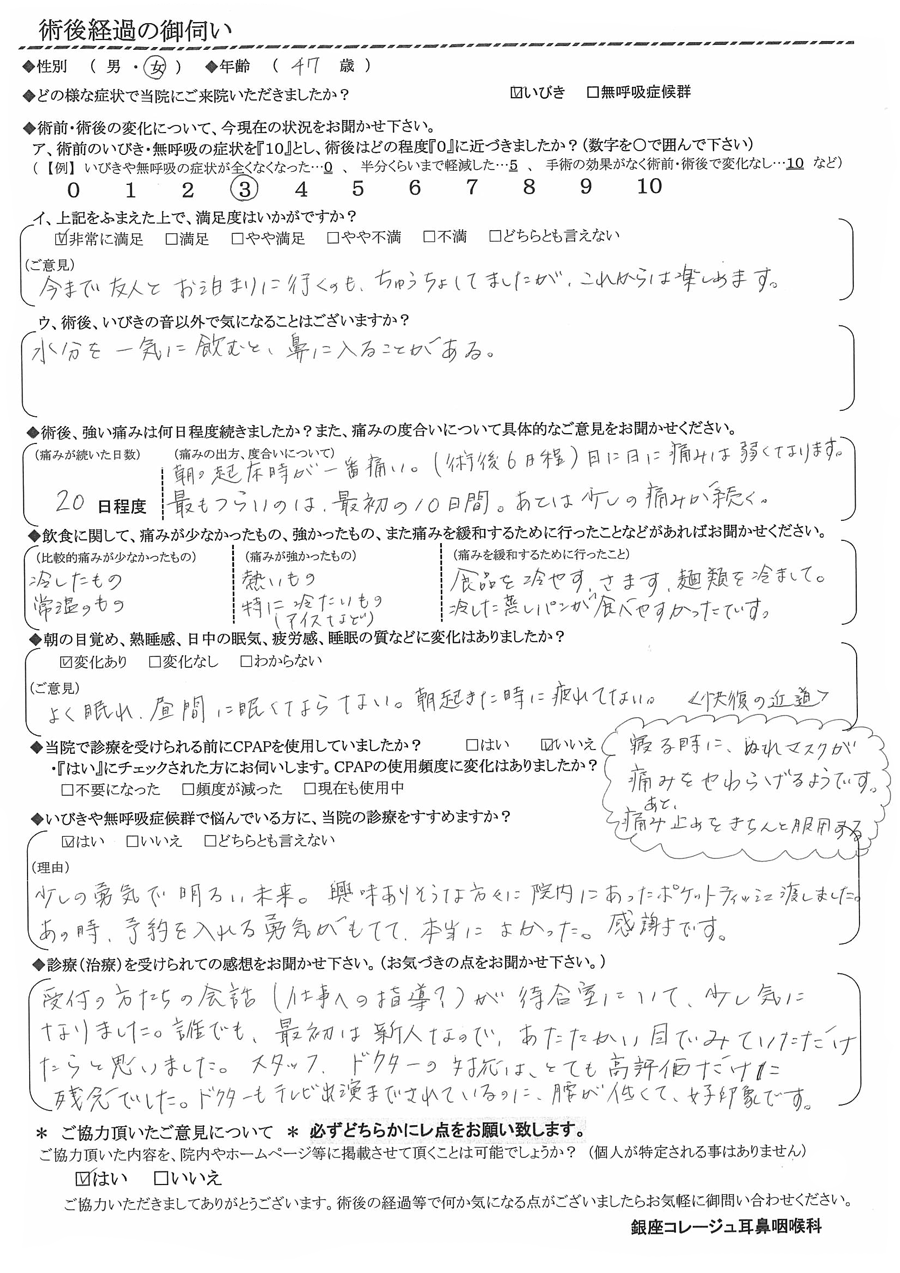 術後経過の御伺い
◆性別 （ 男 ・ 女 ） ◆年齢 （ 47 歳 ）
◆どの様な症状で当院にご来院いただきましたか？ ☑いびき □無呼吸症候群
◆術前・術後の変化について、今現在の状況をお聞かせ下さい。
ア、術前のいびき・無呼吸の症状を『10』とし、術後はどの程度『0』に近づきましたか？（数字を〇で囲んで下さい）
（【例】 いびきや無呼吸の症状が全くなくなった…0 、 半分くらいまで軽減した…5 、 手術の効果がなく術前・術後で変化なし…10 など）
0 1 2 3 4 5 6 7 8 9 10
イ、上記をふまえた上で、満足度はいかがですか？
☑非常に満足 □満足 □やや満足 □やや不満 □不満 □どちらとも言えない
（ご意見）
今まで友人とお泊まりに行くのも、ちゅうちょしてましたが、これからは楽しめます。
ウ、術後、いびきの音以外で気になることはございますか？
水分を一気に飲むと、鼻に入ることがある。
◆術後、強い痛みは何日程度続きましたか？また、痛みの度合いについて具体的なご意見をお聞かせください。
（痛みが続いた日数） （痛みの出方、度合いについて）
朝の起床時が一番痛い。（術後6日程）日に日に痛みは弱くなります。
20 日程度 最もつらいのは、最初の10日間。あとは少しの痛みが続く。
◆飲食に関して、痛みが少なかったもの、強かったもの、また痛みを緩和するために行ったことなどがあればお聞かせください。
（比較的痛みが少なかったもの） （痛みが強かったもの） （痛みを緩和するために行ったこと）
冷したもの 熱いもの 食品を冷やす、さます、麺類を冷まして。
常温のもの 特に冷たいもの 冷した蒸しパンが食べやすかったです。
（アイスなど）
◆朝の目覚め、熟睡感、日中の眠気、疲労感、睡眠の質などに変化はありましたか？
☑変化あり □変化なし □わからない
（ご意見）
よく眠れ、昼間に眠くてならない。朝起きた時に疲れてない。 <快復の近道>
◆当院で診療を受けられる前にCPAPを使用していましたか？ □はい ☑いいえ
・『はい』にチェックされた方にお伺いします。CPAPの使用頻度に変化はありましたか？
□不要になった □頻度が減った □現在も使用中
寝る時に、ぬれマスクが
痛みをやわらげるようです。
あと、
痛み止めをきちんと服用する
◆いびきや無呼吸症候群で悩んでいる方に、当院の診療をすすめますか？
☑はい □いいえ □どちらとも言えない
（理由）
少しの勇気で明るい未来。興味ありそうな方々に院内にあったポケットティッシュ渡しました。
あの時、予約を入れる勇気がもてて、本当によかった。感謝です。
◆診療（治療）を受けられての感想をお聞かせ下さい。（お気づきの点をお聞かせ下さい。）
受付の方たちの会話（仕事への指導？）が待合室にいて、少し気に
なりました。誰でも、最初は新人なので、あたたかい目でみていただけ
たらと思いました。スタッフ、ドクターの対応は、とても高評価だけに
残念でした。ドクターもテレビ出演までされているのに、腰が低くて、好印象です。
＊ ご協力頂いたご意見について ＊ 必ずどちらかにレ点をお願い致します。
ご協力頂いた内容を、院内やホームページ等に掲載させて頂くことは可能でしょうか？ （個人が特定される事はありません）
☑はい □いいえ
ご協力いただきましてありがとうございます。術後の経過等で何か気になる点がございましたらお気軽に御問い合わせください。
銀座コレージュ耳鼻咽喉科